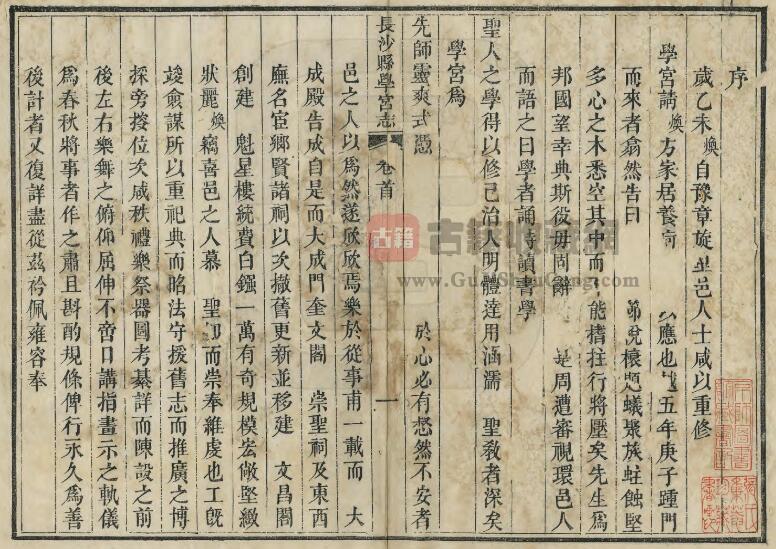 序
歲乙未煥自豫章旋里邑人士咸以重修
學宮請煥方家居養 應也 五年庚子踵門
而來者翕然告曰 榱題蟻聚族蛀蝕堅
多心之木悉空其中而 能撐拄行將壓矣先生爲
邦國望幸典斯役毋固辭 是周遭審視環邑人
而語之曰學者誦詩讀書學
聖人之學得以修己治人明體達用涵濡 聖教者深矣
學宮爲
先師靈爽式憑 於心必有愸然不安者
長沙縣學宮志 卷首 一
邑之人以爲然遂欣欣焉樂於從事甫一載而 大
成殿告成自是而大成門奎文閣 崇聖祠及東西
廡名宦鄉賢諸祠以次撤舊更新並移建 文昌閣
創建 魁星樓統費白鏹一萬有奇規模宏敞堅緻
狀麗煥竊喜邑之人慕 聖切而崇奉維虔也工既
竣僉謀所以重祀典而昭法守援舊志而推廣之博
採旁搜位次咸秩禮樂祭器圖考綦詳而陳設之前
後左右樂舞之俯仰屈伸不啻口講指畫示之軌儀
爲春秋將事者作之肅且斟酌規條俾行永久爲善
後計者又復詳盡從茲衿佩雍容奉
古籍
www.GuJiShouCang.com